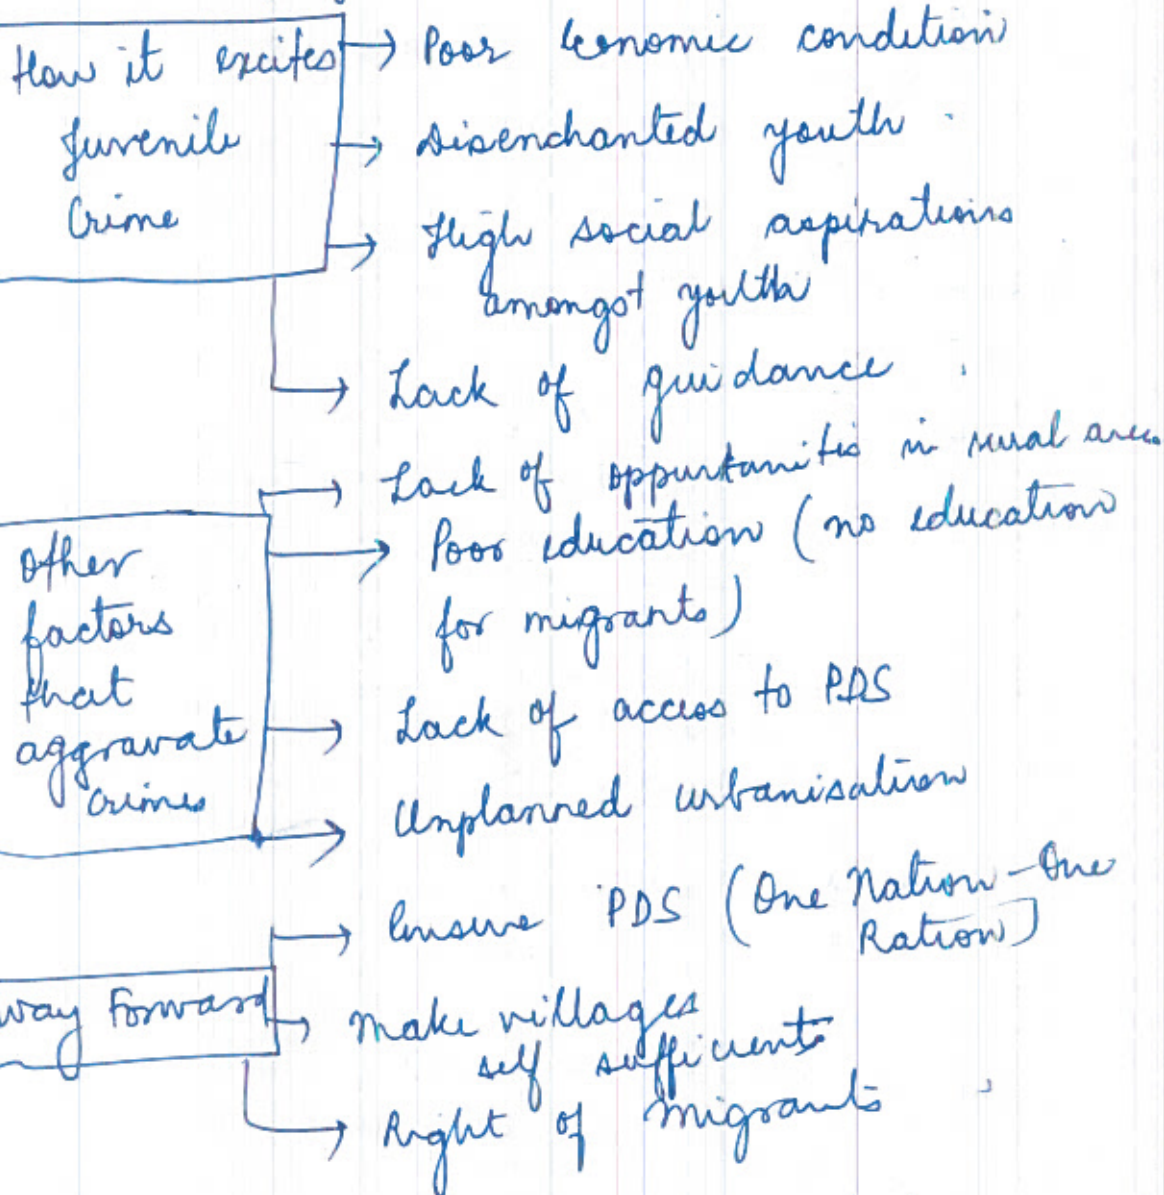 How it excites
Juvenile
Crime
→ Poor Economic condition
→ Disenchanted youth
→ High social aspirations
amongst youth
→ Lack of guidance
Other
factors
that
aggravate
crimes
→ Lack of oppurtunities in rural area
→ Poor education (no education
for migrants)
→ Lack of access to PDS
→ Unplanned urbanisation
way Forward
→ Ensure PDS (One Nation-One
Ration)
→ Make villages
self sufficient
→ Right of Migrants